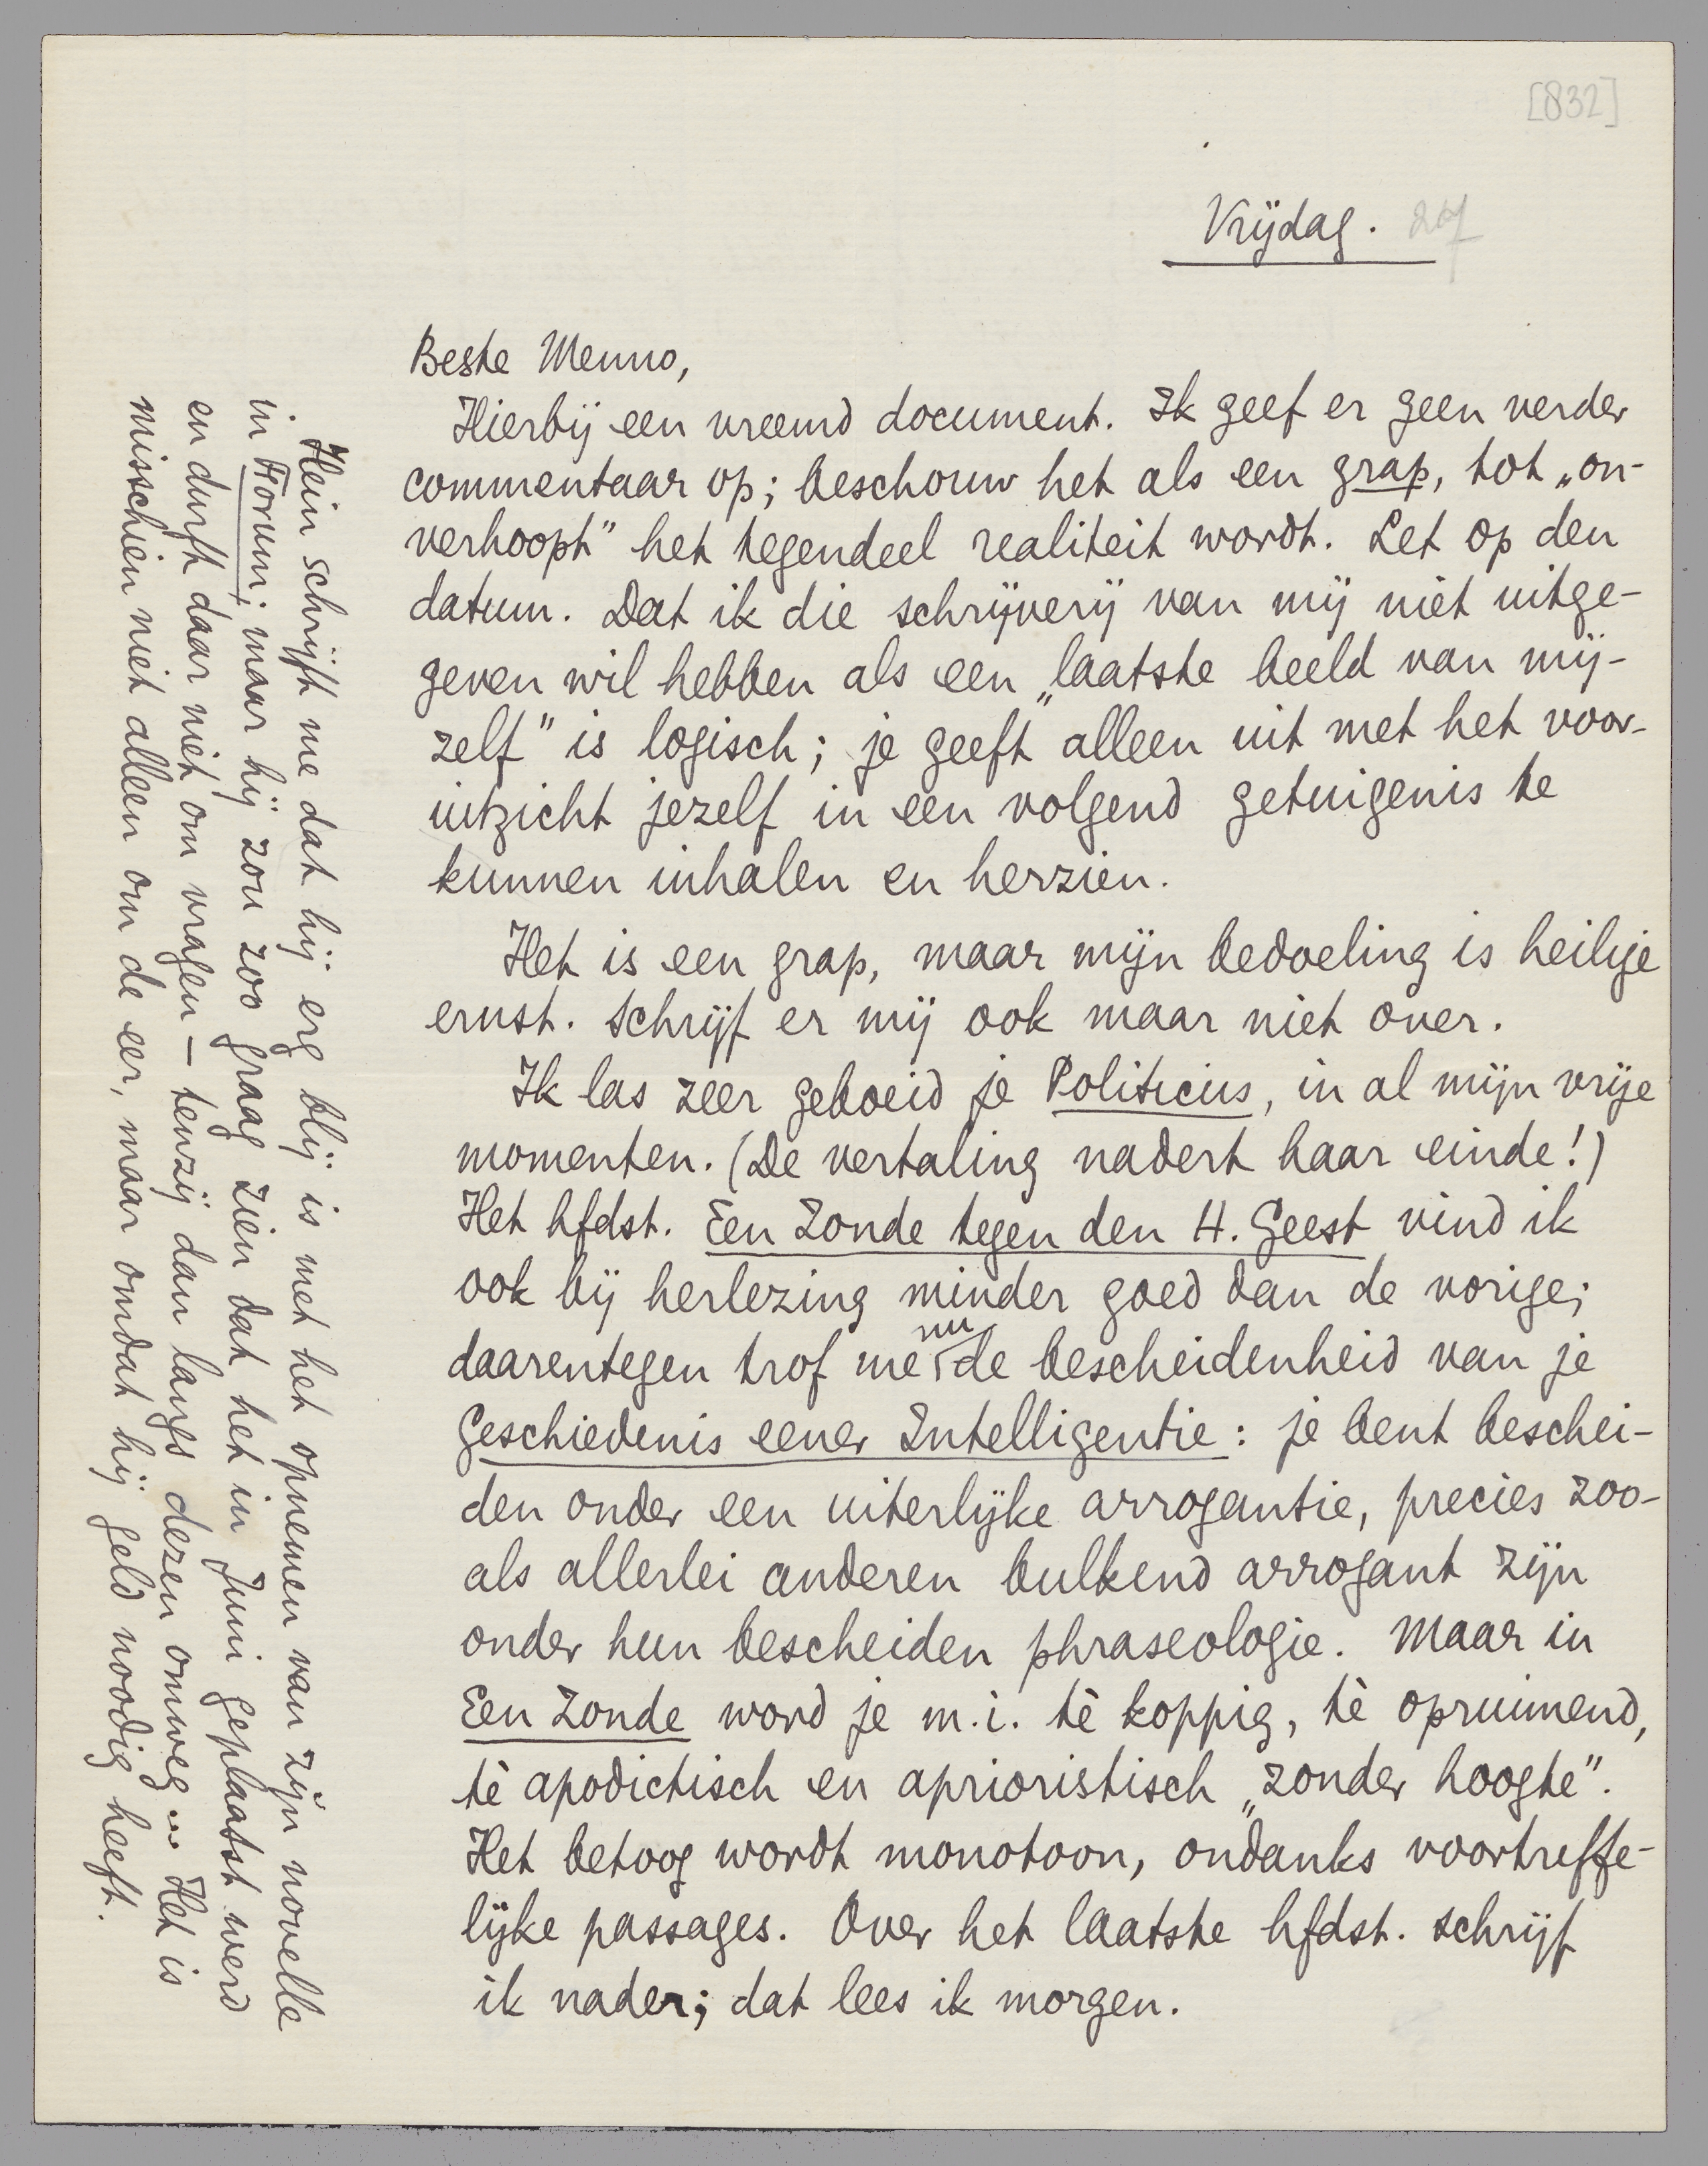 [832]
Vrijdag. 27
Beste Menno,
Hierbij een vreemd document. Ik geef er geen verder
commentaar op; beschouw het als een grap, tot „on-
verhoopt” het tegendeel realiteit wordt. Let op den
datum. Dat ik die schrijverij van mij niet uitge-
geven wil hebben als een „laatste beeld van mij-
zelf” is logisch; je geeft alleen uit met het voor-
uitzicht jezelf in een volgend getuigenis te
kunnen inhalen en herzien.
Het is een grap, maar mijn bedoeling is heilige
ernst. Schrijf er mij ook maar niet over.
Ik las zeer geboeid je Politicus, in al mijn vrije
momenten. (De vertaling nadert haar einde!)
Het hfdst. Een Zonde tegen den H. Geest vind ik
ook bij herlezing minder goed dan de vorige;
daarentegen trof me nu de bescheidenheid van je
Geschiedenis eener Intelligentie: je bent beschei-
den onder een uiterlijke arrogantie, precies zoo-
als allerlei anderen bulkend arrogant zijn
onder hun bescheiden phraseologie. Maar in
Een Zonde word je m.i. tè koppig, tè opruimend,
tè apodictisch en aprioristisch „zonder hoogte”.
Het betoog wordt monotoon, ondanks voortreffe-
lijke passages. Over het laatste hfdst. schrijf
ik nader; dat lees ik morgen.
Hein schrijft me dat hij erg blij is met het opnemen van zijn novelle
in Forum; maar hij zou zoo graag zien dat het in Juni geplaatst werd
en durft daar niet om vragen — tenzij dan langs dezen omweg... Het is
misschien niet alleen om de eer, maar omdat hij geld noodig heeft.